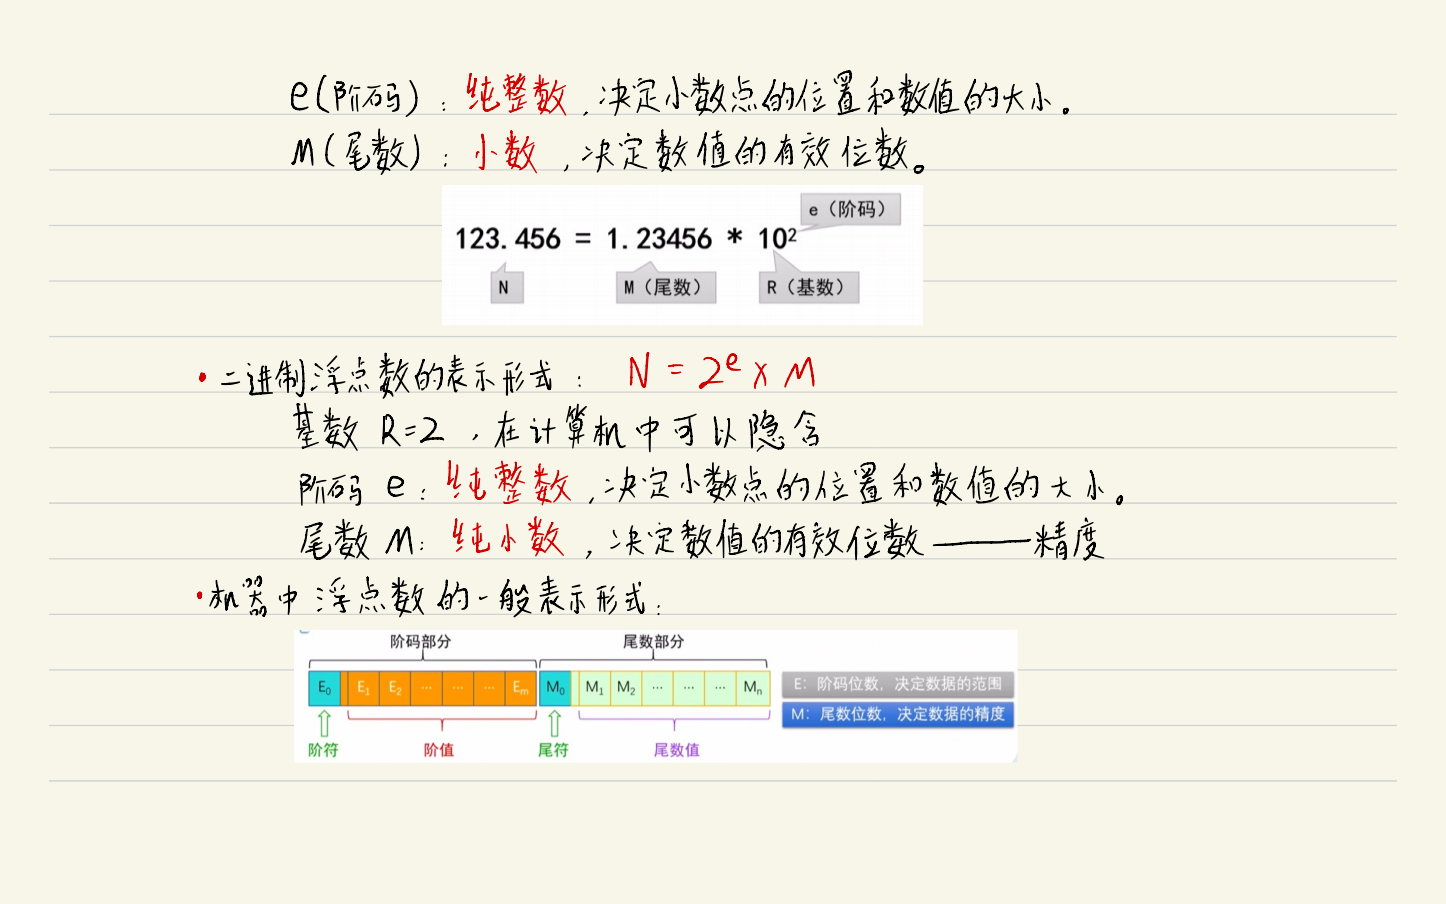 e(阶码)：纯整数，决定小数点的位置和数值的大小。
M(尾数)：小数，决定数值的有效位数。
e（阶码）
123.456 = 1.23456 * 10²
N M（尾数） R（基数）
•二进制浮点数的表示形式： N = 2ᵉ × M
基数 R=2，在计算机中可以隐含
阶码 e：纯整数，决定小数点的位置和数值的大小。
尾数 M：纯小数，决定数值的有效位数——精度
•机器中浮点数的一般表示形式：
阶码部分 尾数部分
E₀ E₁ E₂ … … … Eₘ M₀ M₁ M₂ … … … Mₙ
E：阶码位数，决定数据的范围
M：尾数位数，决定数据的精度
阶符 阶值 尾符 尾数值